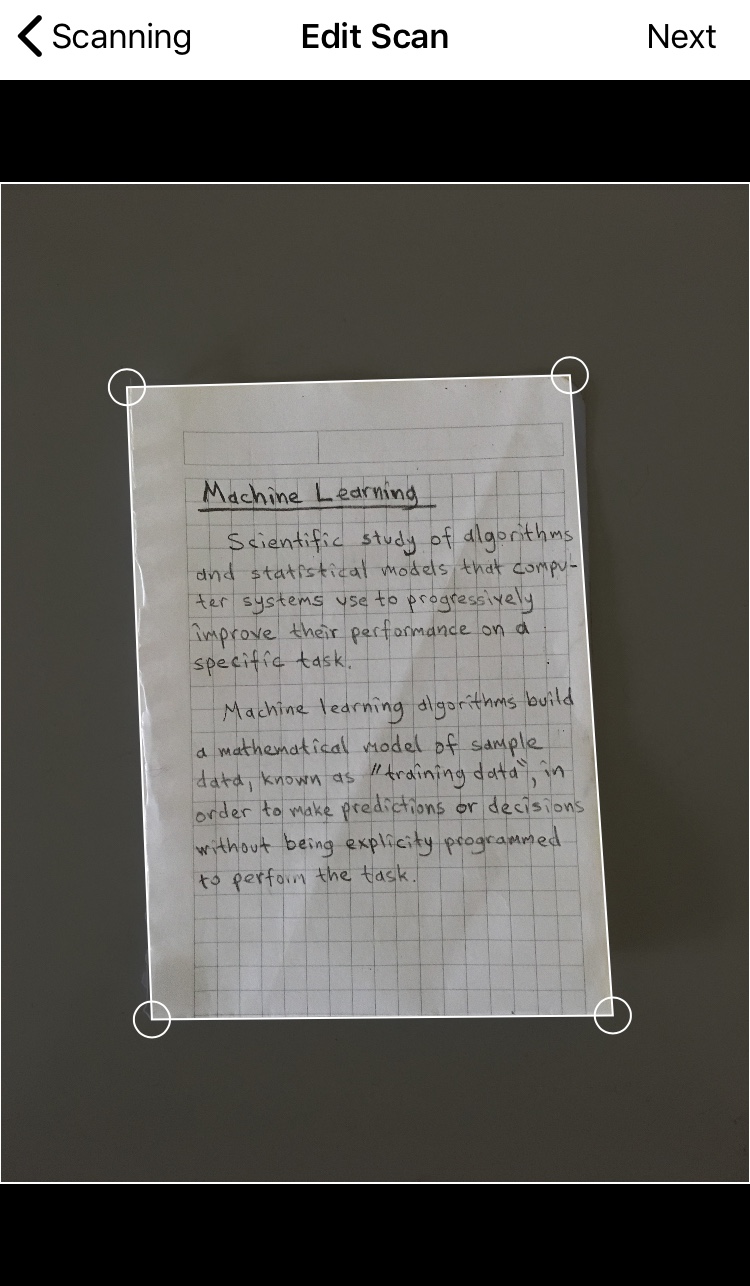 Scanning
Edit Scan
Next
Machine Learning
Scientific study of algorithms
and statistical models that compu-
ter systems use to progressively
improve their performance on a
specific task.
Machine learning algorithms build
a mathematical model of sample
data, known as "training data", in
order to make predictions or decisions
without being explicity programmed
to perfoim the task.